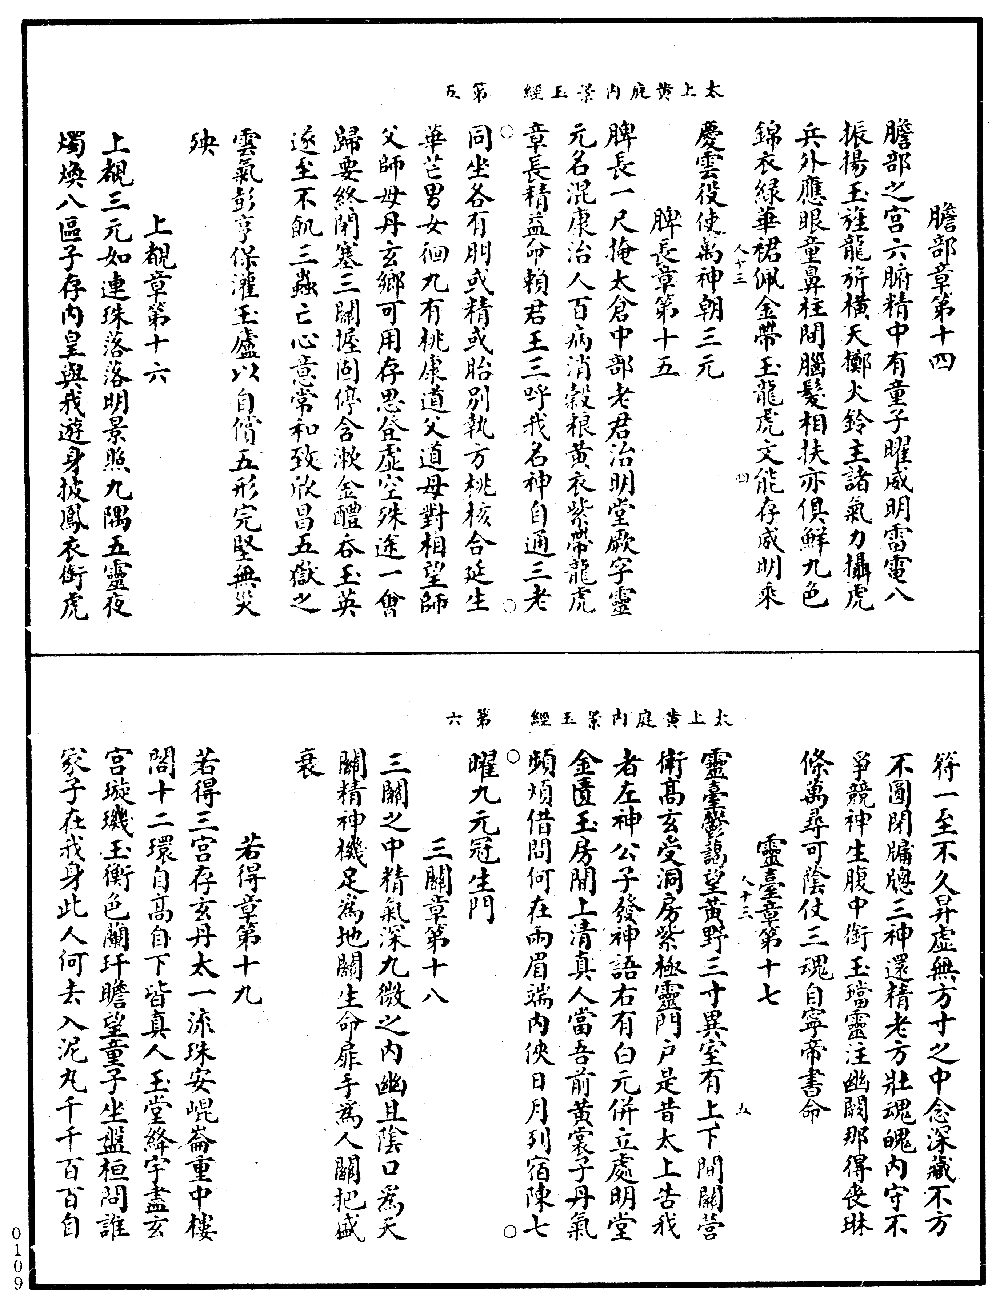 太上黃庭內景玉經　第五
膽部章第十四
膽部之宮六腑精中有童子曜威明雷電八
振揚玉旌龍旂橫天擲火鈴主諸氣力攝虎
兵外應眼童鼻柱間腦髮相扶亦俱鮮九色
錦衣綠華裙佩金帶玉龍虎文能存威明乘
慶雲役使萬神朝三元
脾長章第十五
脾長一尺掩太倉中部老君治明堂厥字靈
元名混康治人百病消穀粮黃衣紫帶龍虎
章長精益命賴君王三呼我名神自通三老
同坐各有朋或精或胎別執方桃核合延生
華芒男女徊九有桃康道父道母對相望師
父師母丹玄鄉可用存思登虛空殊途一會
歸要終閉塞三關握固停含漱金醴吞玉英
遂至不飢三蟲亡心意常和致欣昌五嶽之
雲氣彭亨保灌玉廬以自償五形完堅無災
殃
上覩章第十六
上覩三元如連珠落落明景照九隅五靈夜
燭煥八區子存內皇與我遊身披鳳衣銜虎
人十三　四
太上黃庭內景玉經　第六
符一至不久昇虛無方寸之中念深藏不方
不圓閉牖牕三神還精老方壯魂魄內守不
爭競神生腹中銜玉璫靈注幽闕那得喪琳
條萬尋可蔭仗三魂自寧帝書命
靈臺章第十七
靈臺鬱藹望黃野三寸異室有上下間關營
衛高玄受洞房紫極靈門戶是昔太上告我
者左神公子發神語右有白元併立處明堂
金匱玉房間上清真人當吾前黃裳子丹氣
頻煩借問何在兩眉端內俠日月列宿陳七
曜九元冠生門
三關章第十八
三關之中精氣深九微之內幽且陰口為天
關精神機足為地關生命扉手為人關把盛
衰
若得章第十九
若得三宮存玄丹太一流珠安崐崙重中樓
閣十二環自高自下皆真人玉堂絳宇盡玄
宮璇璣玉衡色蘭玕瞻望童子坐盤桓問誰
家子在我身此人何去入泥丸千千百百自
人十三　五
0109